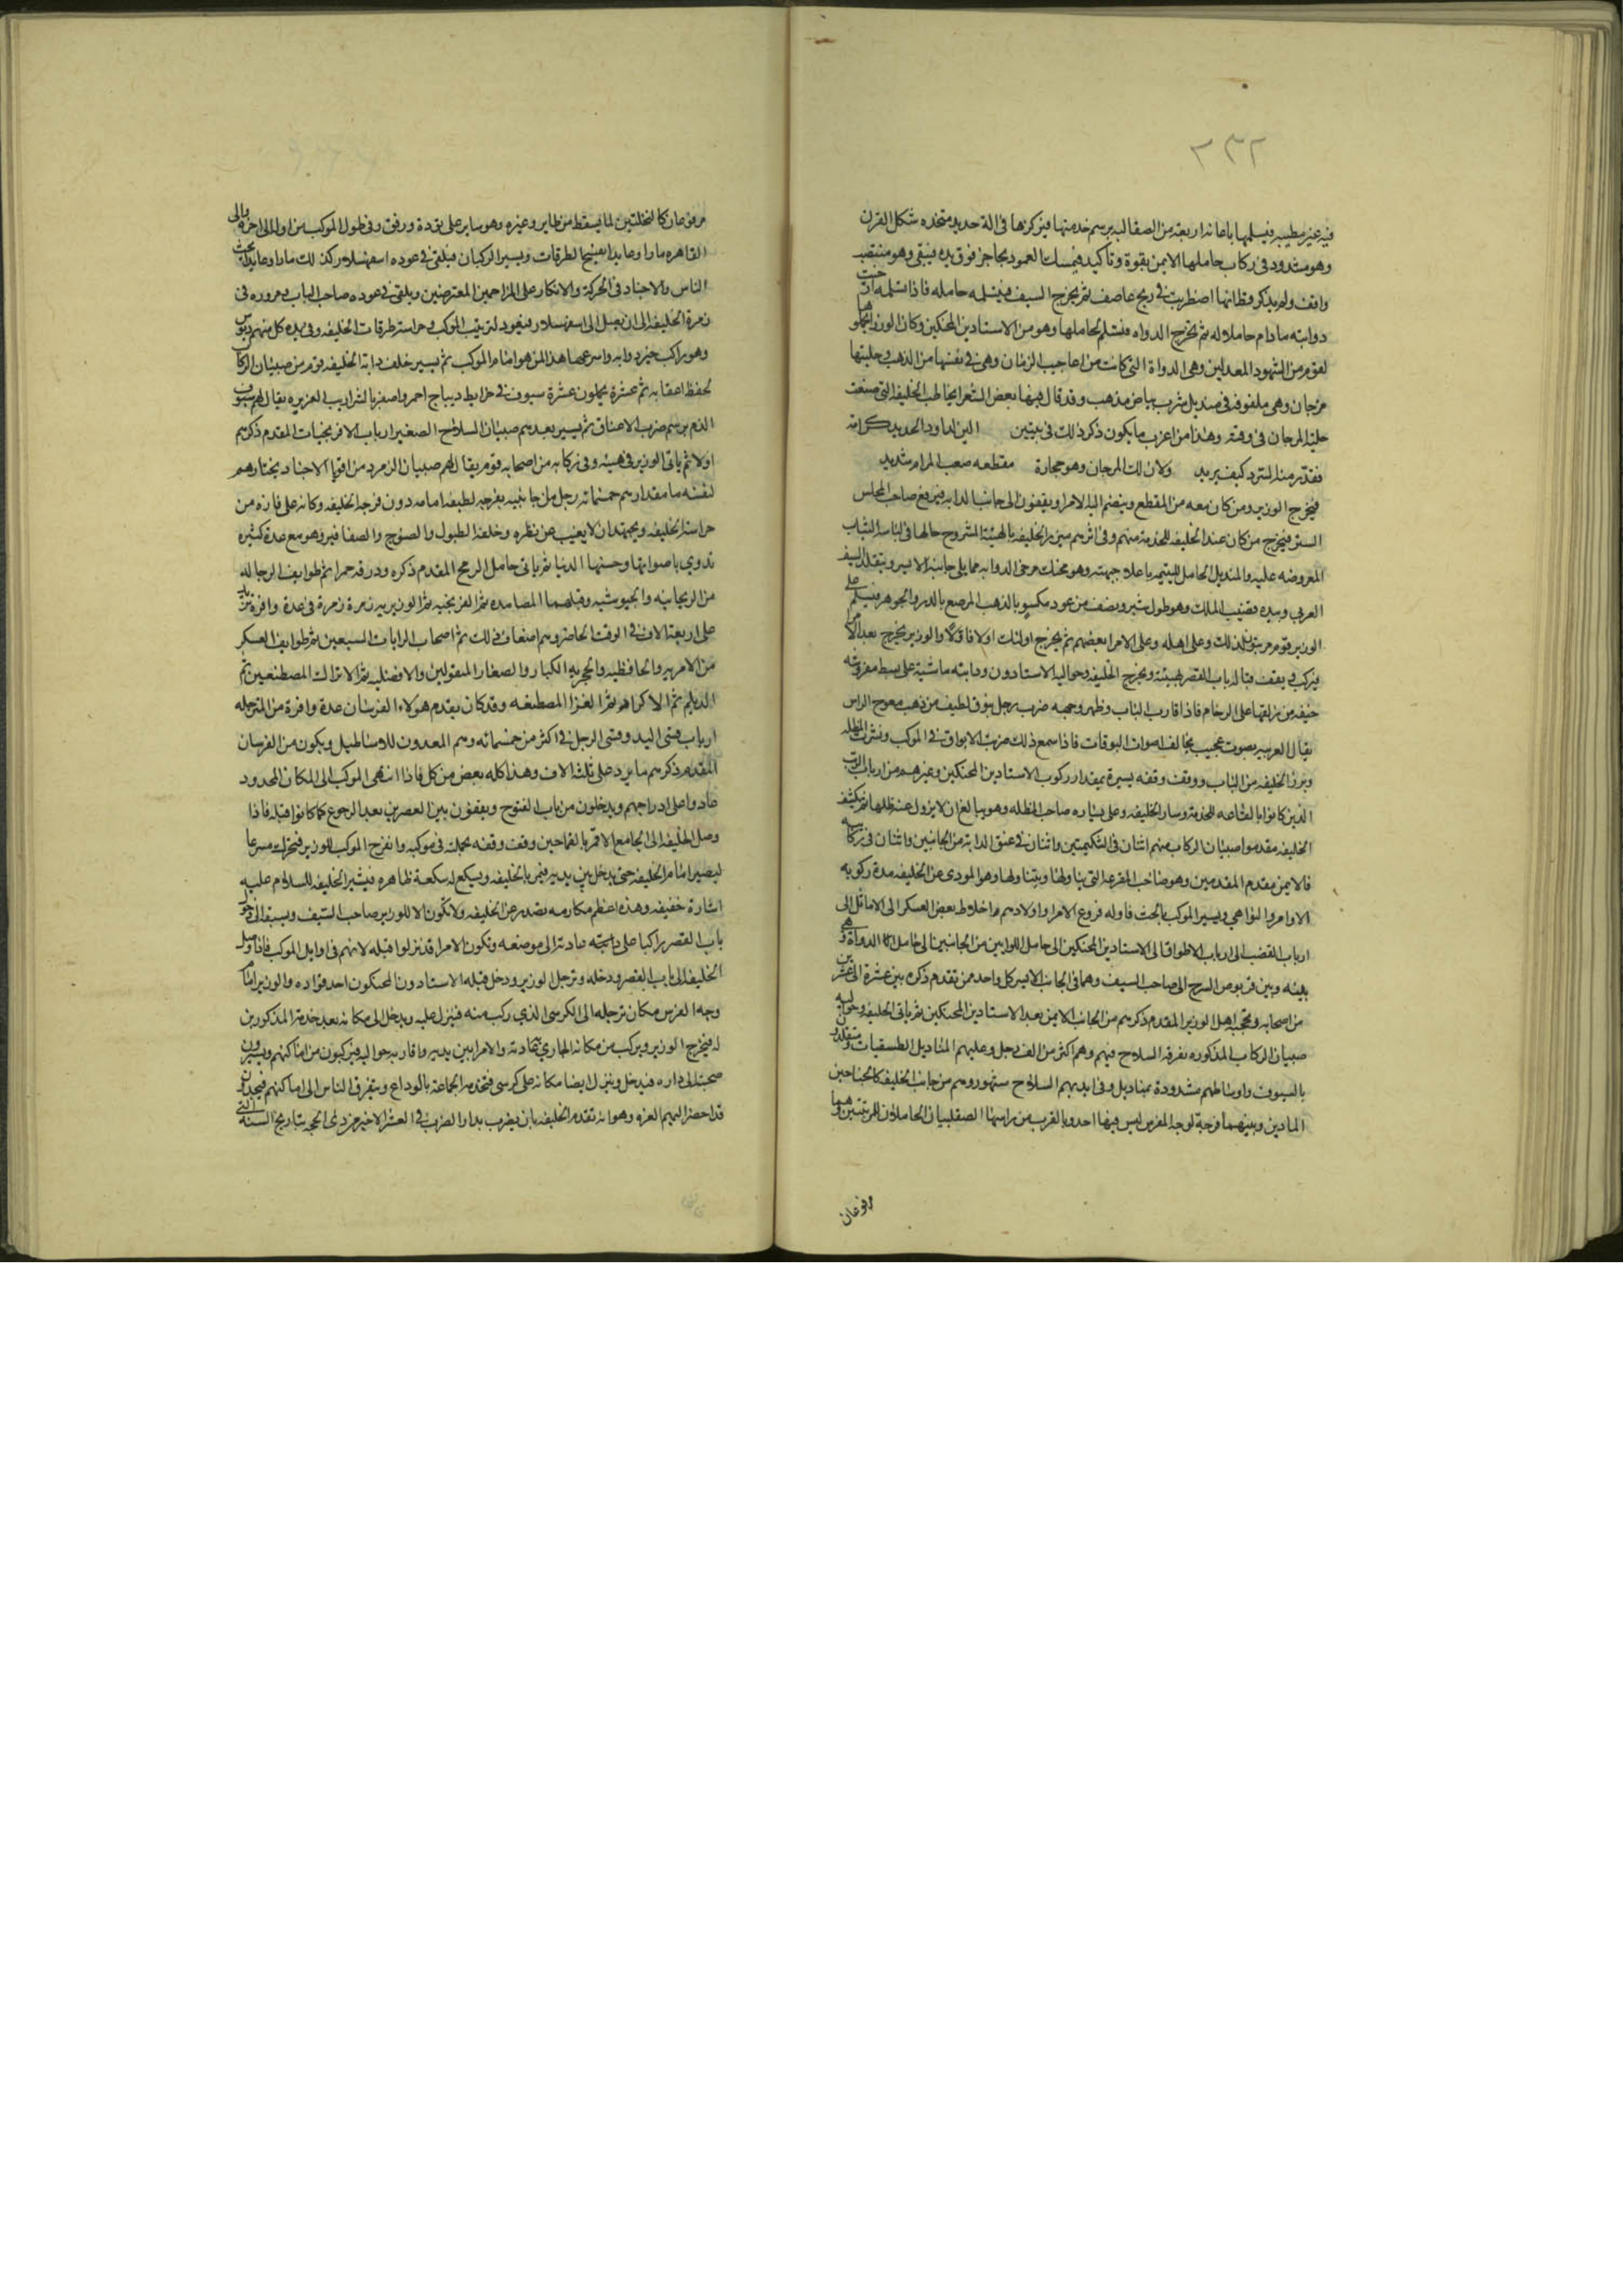 ٢٣٢
فيه غير مطيب فيسلمها باعانة اربعة من الصقالبة برسم خدمتها فيركزها في الة حديد متخذه شكل القرن
وهو مشدود في ركاب حاملها الايمن بقوة وتاكيد فيمسك العمود بحاجز فوق يده فيبقى وهو منتصب
واقف ولم يذكر قط انها اضطربت في ريح عاصف ثم يخرج السيف فيتسلمه حامله فاذا تسلمه ارخيت
ذوابته ما دام حاملا له ثم تخرج الدواه فتسلم لحاملها وهو من الاستاذين المحنكين وكان الوزرا جعلوها
لقوم من الشهود المعدلين وهي الدواة التي كانت من اعاجيب الزمان وهي في نفسها من الذهب وحليتها
مرجان وهي ملفوفه في منديل شرب بياض مذهب وقد قال فيها بعض الشعرا يخاطب الخليفه التي صنعت
حلية المرجان في وقته وهذا من اغرب ما يكون ذكر ذلك في بيتين الين لداود الحديد كرامة
فقدر منه السرد كيف يريد ولان لك المرجان وهو حجارة مقطعه صعب المرام شديد
فيخرج الوزير ومن كان معه من المقطع وينضم اليه الامرا ويقفون الى جانب الدابه فيرفع صاحب المجلس
الستر فيخرج من كان عند الخليفه للخدمة منهم وفي اثرهم يبرز الخليفه بالهيئة المشروح حالها في لباسه الثياب
المعروضه عليه والمنديل الحامل لليتيمه باعلا جبهته وهو محنك مرخى الذوابه مما يلي جانبه الايسر ويتقلد السيف
العربي وبيده قضيب الملك وهو طول شبر ونصف من عود مكسو بالذهب المرصع بالدر والجوهر فيسلم على
الوزير قوم مرتبون لذلك وعلى اهله وعلى الامرا بعضهم ثم يخرج اولئك اولا فاولا والوزير يخرج بعد الامرا
فيركب ويقف قبالة باب القصر بهيئته ويخرج الخليفه وحواليه الاستاذون ودابته ماشية على بسط مفروشه
خيفه من زلقها على الرخام فاذا قارب الباب وظهر وجهه ضرب رجل ببوق لطيف من ذهب معوج الراس
يقال له العربيه بصوت عجيب يخالف اصوات البوقات فاذا سمع ذلك ضربت الابواق في الموكب ونشرت المظله
وبرز الخليفه من الباب ووقف وقفه يسيرة بمقدار ركوب الاستاذين المحنكين وغيرهم من ارباب الرتب
الذين كانوا بالقاعه للخدمة وسار الخليفه وعلى يساره صاحب المظله وهو يبالغ ان لا يزول عنه ظلها ثم يكتنف
الخليفه مقدموا صبيان الركاب منهم اثنان في الشكيمتين واثنان في عنق الدابة من الجانبين واثنان في ركابه
فالايمن مقدم المقدمين وهو صاحب المقرعه التي يناولها ويتناولها وهو المودي عن الخليفه مدة ركوبه
الاوامر والنواهي ويسير الموكب بالحث فاوله فروع الامرا واولادهم واخلاط بعض العسكر الى الاماثل الى
ارباب القضب الى ارباب الاطواق الى الاستاذين المحنكين الى حامل اللوايين من الجانبين الى حامل الدواة وهي
بينه وبين قربوص السرج الى صاحب السيف وهما في الجانب الايسر كل واحد ممن تقدم ذكره بين عشرة الى عشرين
من اصحابه ويحجبه اهل الوزير المقدم ذكرهم من الجانب الايمن بعد الاستاذين المحنكين ثم ياتي الخليفه وحواليه
صبيان الركاب المذكوره تفرقة السلاح فيهم وهم اكثر من الف رجل وعليهم المناديل الطبقيات متقلدون
بالسيوف واوساطهم مشدودة بمناديل وفي ايديهم السلاح مشهور وهم من جانب الخليفه كالجناحين
المادين وبينهما فرجة لوجه الفرس ليس فيها احد وبالقرب من راسها الصقلبيان الحاملان للمذبتين وهما
مرفوعان
مرفوعان كالنخلتين لما يسقط من طاير وغيره وهو ساير على تؤدة ورفق وفي طول الموكب من اوله الى اخره والى
القاهره مارا وعايدا يفسح الطرقات ويسير الركبان فيلقى في عوده اسفهسلار كذلك مارا وعايدا يحث
الناس والاجناد في الحركة والانكار على المزاحمين المعترضين ويلقى في عوده صاحب الباب ومروره في
زمرة الخليفه الى ان يصل الى اسفهسلار فيعود لترتيب الموكب وحراسة طرقات الخليفه وفي يده كل منهم دبوس
وهو راكب خير دوابه واسرعها هذا لمن هو امام الموكب ثم يسير خلف دابة الخليفه قوم من صبيان الركاب
لحفظ اعقابه ثم عشرة يحملون عشرة سيوف في خرايط ديباج احمر واصفر بالشراريب الغزيره يقال لهم سيوف
الدم برسم ضرب الاعناق ثم يسير بعدهم صبيان السلاح الصغير ارباب الافرنجيات المقدم ذكرهم
اولا ثم ياتي الوزير في هيبته وفي ركابه من اصحابه قوم يقال لهم صبيان الزرد من اقويا الاجناد يختارهم
لنفسه ما مقدارهم خمسمائة رجل من جانبيه بفرجه لطيفه امامه دون فرجه الخليفه وكانه على وفازه من
حراسة الخليفه ويجتهد ان لا يغيب عن نظره وخلفه الطبول والصنوج والصفافير وهو مع عدة كثيره
تدوي باصواتها وحسنها الدنيا ثم ياتي حامل الرمح المقدم ذكره ودرقة حمرا ثم طوايف الرجاله
من الريحانيه والجيوشيه وقبلهما المصامده ثم الفرنجيه ثم الوزيريه زمرة زمرة في عدة وافرة
على اربعة الاف في الوقت الحاضر وهم اضعاف ذلك ثم اصحاب الرايات السبعين ثم طوايف العسكر
من الامريه والحافظيه والحجريه الكبار والصغار المنقولين والافضليه ثم الاتراك المصطنعين ثم
الديلم ثم الاكراد ثم الغز المصطنعه وقد كان تقدم هولاء الفرسان عدة وافرة من المترجله
ارباب قسي اليد وقسي الرجل في اكثر من خمسمائه وهم المعدون للاساطيل ويكون من الفرسان
المقدم ذكرهم ما يزيد على ثلثة الاف وهذا كله بعض من كل فاذا انتهى الموكب الى المكان المحدود
عادوا على ادراجهم ويدخلون من باب الفتوح ويقفون بين القصرين بعد الرجوع كما كانوا قبله فاذا
وصل الخليفه الى الجامع الاقمر بالقماحين وقف وقفه بجملته في موكبه وانفرج الموكب للوزير فيتحرك مسرعا
ليصير امام الخليفه حتى يدخل بين يديه فيمر بالخليفه ويسكع له سكعة ظاهره فيشير الخليفه للسلام عليه
اشارة خفيفه وهذه اعظم مكارمه تصدر عن الخليفه ولا تكون الا للوزير صاحب السيف ويسبق الى دخول
باب القصر راكبا على دابته عادته الى موضعه وتكون الامرا قد نزلوا قبله لانهم في اوايل الموكب فاذا وصل
الخليفه الى باب القصر ودخله وترجل الوزير ودخل قبله الاستاذون المحنكون احدقوا به والوزير امام
وجه الفرس مكان ترجله الى الكرسي الذي ركب منه فينزل عليه ويدخل الى مكانه بعد خدمة المذكورين
له فيخرج الوزير ويركب من مكانه الجاري به عادته والامرا بين يديه واقاربه حواليه فيركبون من اماكنهم ويسيرون
صحبته الى داره فيدخل وينزل ايضا مكانه على كرسي فتخدم الجماعة بالوداع ويتفرق الناس الى اماكنهم فيجدون
قد احضر اليهم الغره وهو انه تقدم الخليفه بان يضرب بدار الضرب في العشر الاخير من ذي الحجه بتاريخ السنه التي